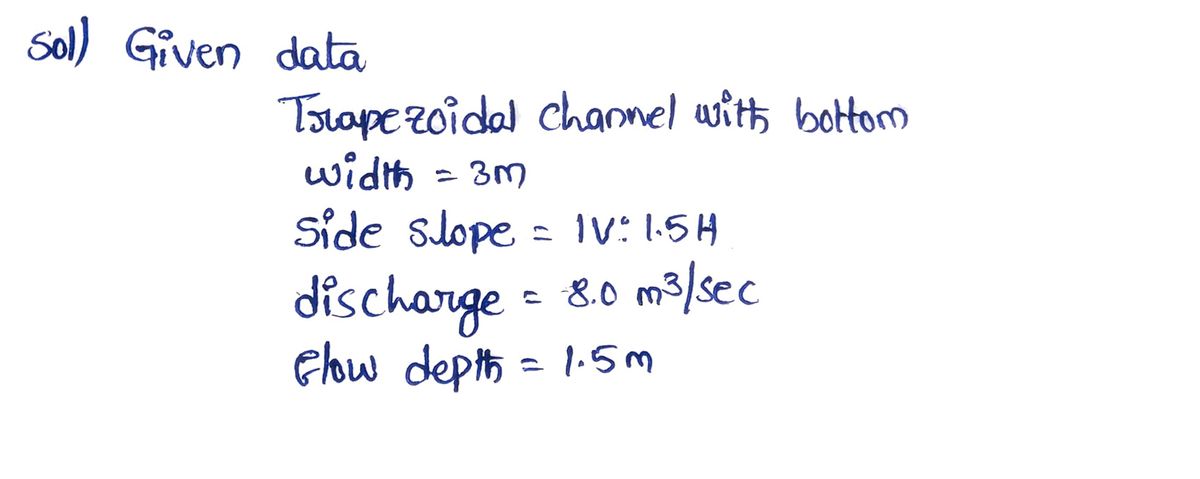 Sol) Given data
Trapezoidal channel with bottom
width = 3m
Side slope = 1V: 1.5H
discharge = 8.0 m3/sec
Flow depth = 1.5m